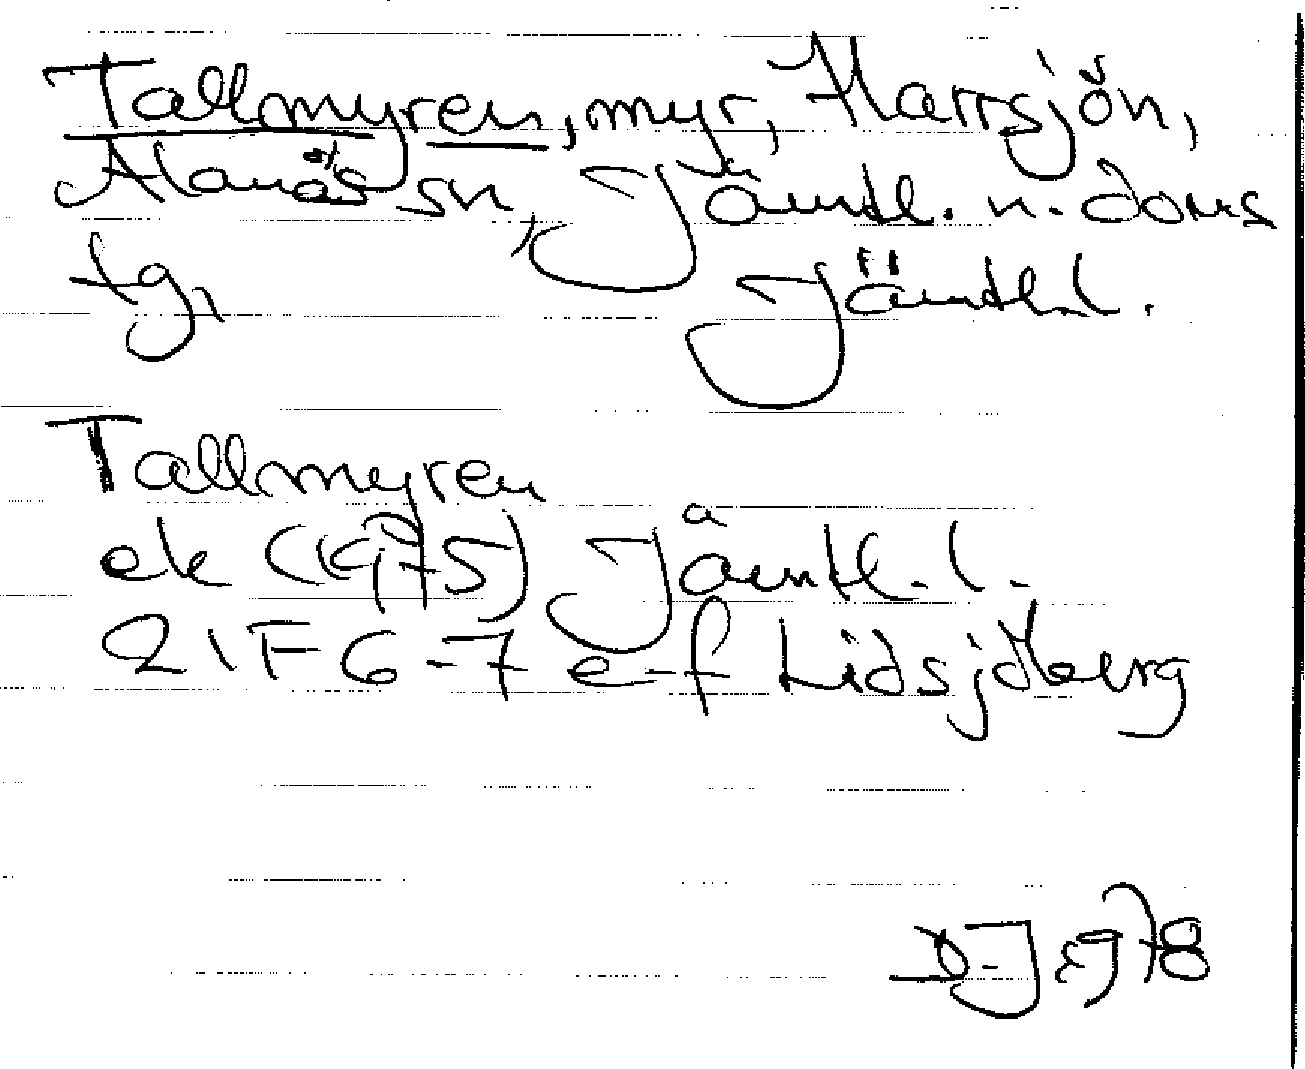 Tallmyren, myr, Harrsjön,
Alanäs sn, Jämtl. n. doms
tg, Jämtl. l.
Tallmyren
ek (1975) Jämtl. l.
21F 6-7 e-f Lidsjöberg
D-J 1978